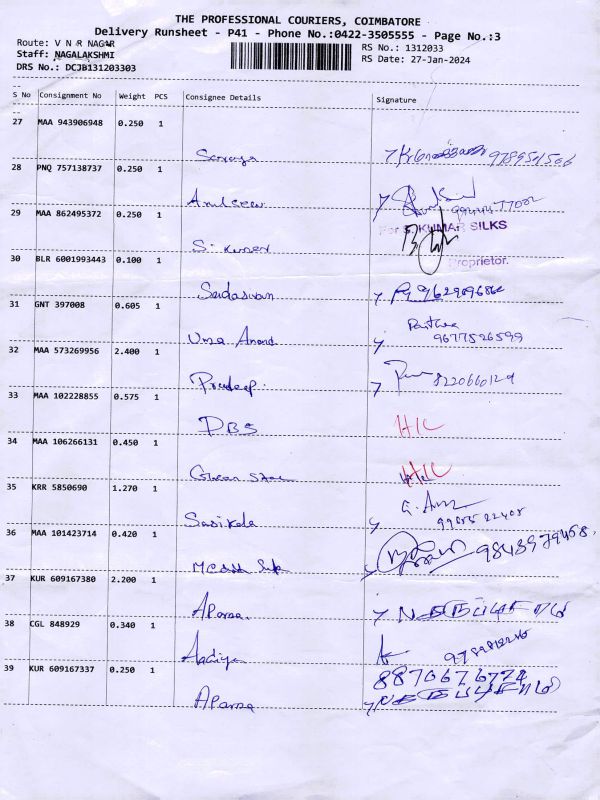 THE PROFESSIONAL COURIERS, COIMBATORE
Delivery Runsheet - P41 - Phone No.:0422-3505555 - Page No.:3
Route: V N R NAGAR
RS No.: 1312033
Staff: NAGALAKSHMI
RS Date: 27-Jan-2024
DRS No.: DCJB131203303
S No Consignment No Weight PCS Consignee Details Signature
27 MAA 943906948 0.250 1
28 PNQ 757138737 0.250 1
29 MAA 862495372 0.250 1
For S. KUMAR SILKS
S. Kumar
30 BLR 6001993443 0.100 1
Proprietor.
Sadasivan
31 GNT 397008 0.605 1
Uma Anand
9677526599
32 MAA 573269956 2.400 1
Pradeep. 8220660129
33 MAA 102228855 0.575 1
DBS H/C
34 MAA 106266131 0.450 1
H/C
35 KRR 5850690 1.270 1
Sasikala
36 MAA 101423714 0.420 1
9843979458.
37 KUR 609167380 2.200 1
Aparna.
38 CGL 848929 0.340 1
Aadiya
39 KUR 609167337 0.250 1
8870676774
Aparna